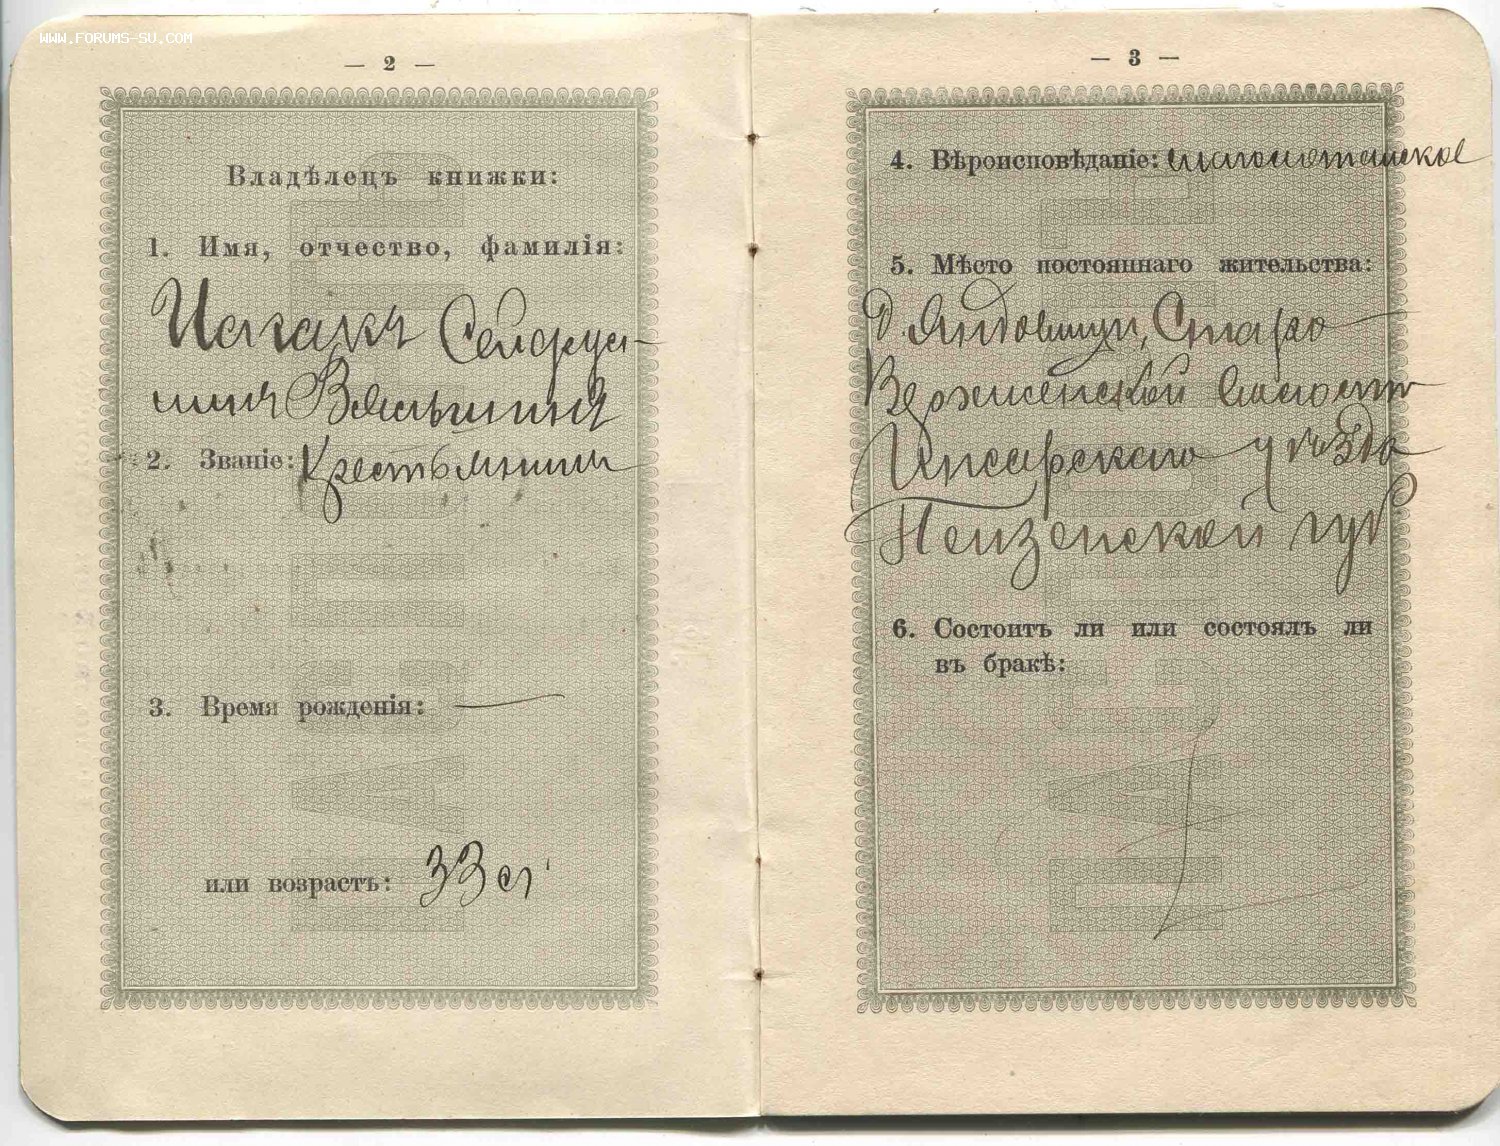 WWW.FORUMS-SU.COM
— 2 —
Владѣлецъ книжки:
1. Имя, отчество, фамилія:
Исхакъ
2. Званіе: Крестьянинъ
3. Время рожденія: —
или возрастъ: 33 л.
— 3 —
4. Вѣроисповѣданіе: магометанское
5. Мѣсто постояннаго жительства:
д. Старо
Верхиссенской волости
Инсарскаго уѣзда
Пензенской губ
6. Состоитъ ли или состоялъ ли
въ бракѣ: